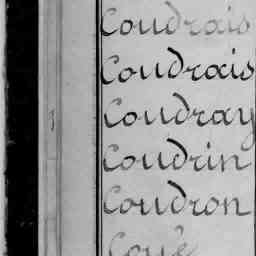 Coudrais
Coudrais
Coudray
Coudrin
Coudron
Coué